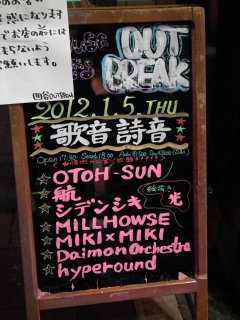 になります
でお店の前には
まらないよう
お願いします。
四谷OUTBREAK
OUT
BREAK
2012.1.5.THU
歌音詩音
Open 17:30 Start 18:00
☆OTOH-SUN
☆航
☆シデンシキ
光
☆MILLHOWSE
☆MIKI×MIKI
☆Daimon Orchestra
☆hyperound